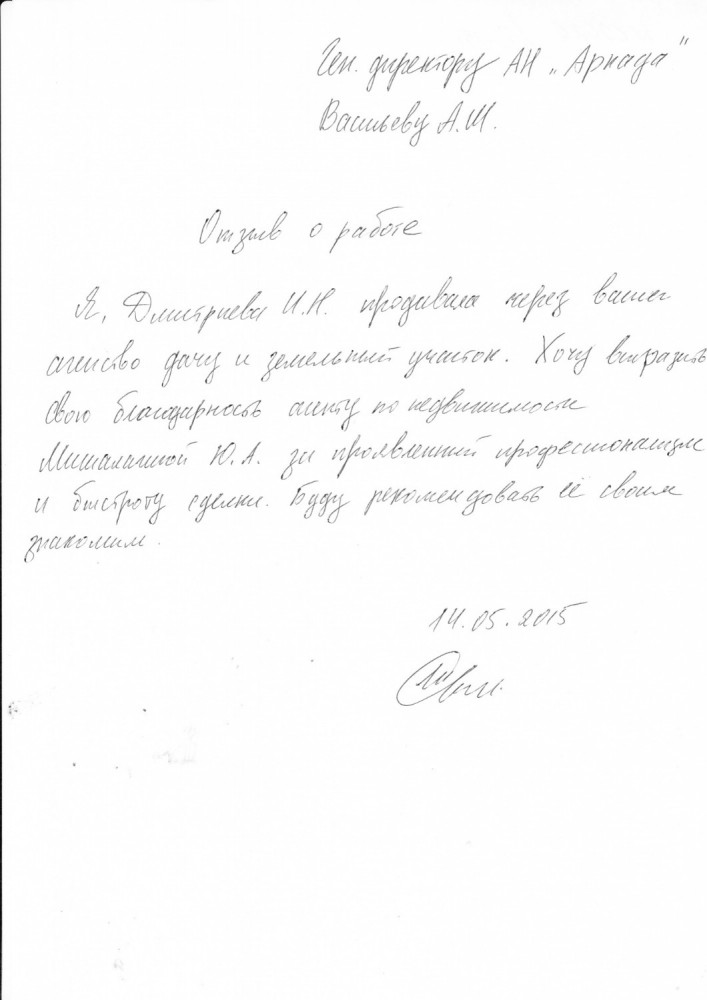 Ген. директору АН „Аркада"
Васильеву А.Ш.
Отзыв о работе
Я, Дмитриева И.Н. продавала через ваше
агенство дачу и земельный участок. Хочу выразить
свою благодарность агенту по недвижимости
Ю.А. за проявленный профессионализм
и быстроту сделки. Буду рекомендовать её своим
знакомым.
14.05.2015